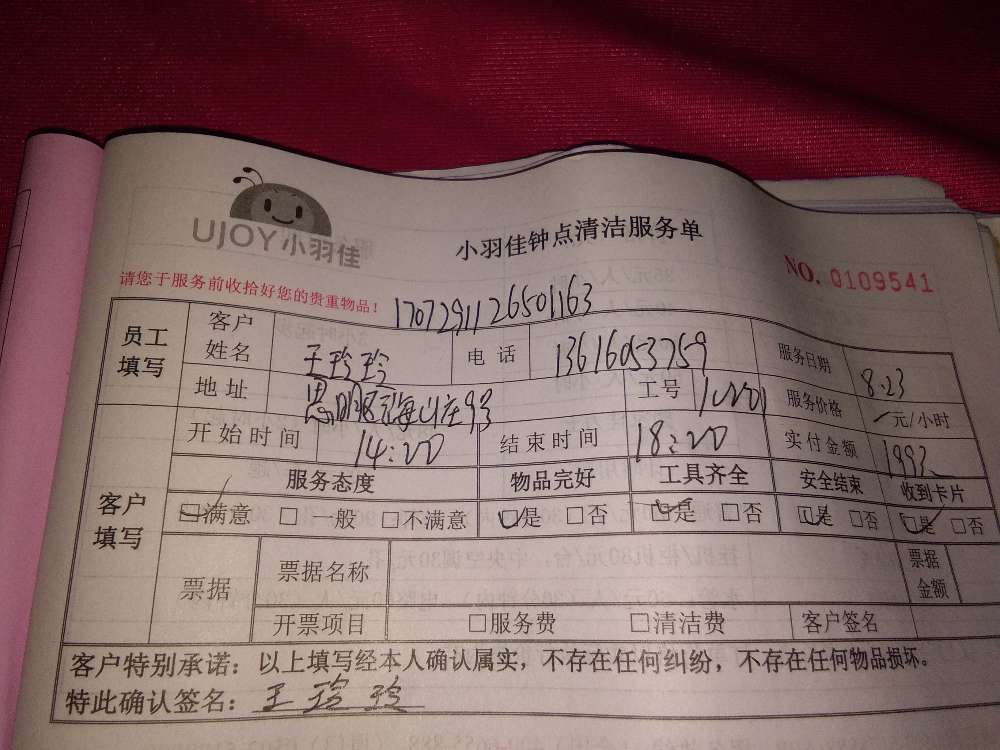 UJOY小羽佳
小羽佳钟点清洁服务单
NO. 0109541
请您于服务前收拾好您的贵重物品!
1707291126501163
员工填写 客户姓名 王玲玲 电话 13616053759 服务日期 8.23
地址 思明区 海山庄93 工号 服务价格 元/小时
开始时间 14:20 结束时间 18:20 实付金额 1993
客户填写 服务态度 物品完好 工具齐全 安全结束 收到卡片
☑满意 □一般 □不满意 ☑是 □否 ☑是 □否 ☑是 □否 ☑是 □否
票据 票据名称 票据金额
开票项目 □服务费 □清洁费 客户签名
客户特别承诺:以上填写经本人确认属实,不存在任何纠纷,不存在任何物品损坏。
特此确认签名:王玲玲